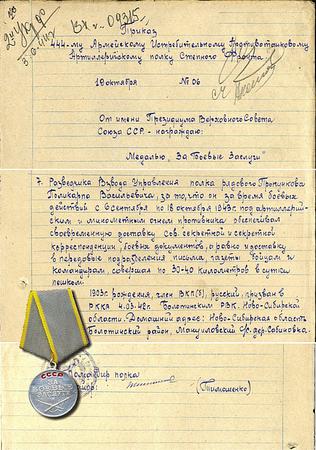 Вх. № 09315.
Приказ
444-му Армейскому Истребительному Противотанковому
Артиллерийскому полку Степного Фронта
19 октября № 06
От имени Президиума Верховного Совета
Союза ССР - награждаю:
Медалью „За Боевые Заслуги"
7. Разведчика Взвода Управления полка рядового
Поликарпа Васильевича, за то, что он за время боевых
действий с 6 сентября по 18 октября 1943г под артиллерий-
ским и минометным огнем противника обеспечивал
своевременную доставку сов. секретной и секретной
корреспонденции, боевых документов, а равно и доставку
в передовые подразделения письма, газеты бойцам и
командирам, совершая по 30-40 километров в сутки
пешком.
1903г. рождения, член ВКП(б), русский, призван в
РККА 4.03.42г. Болотинским РВК, Ново-Сибирской
области. Домашний адрес: Ново-Сибирская область
Болотинский район, с/с, дер. Сабиновка.
Командир полка
(Тимошенко)
СССР
ЗА
БОЕВЫЕ
ЗАСЛУГИ